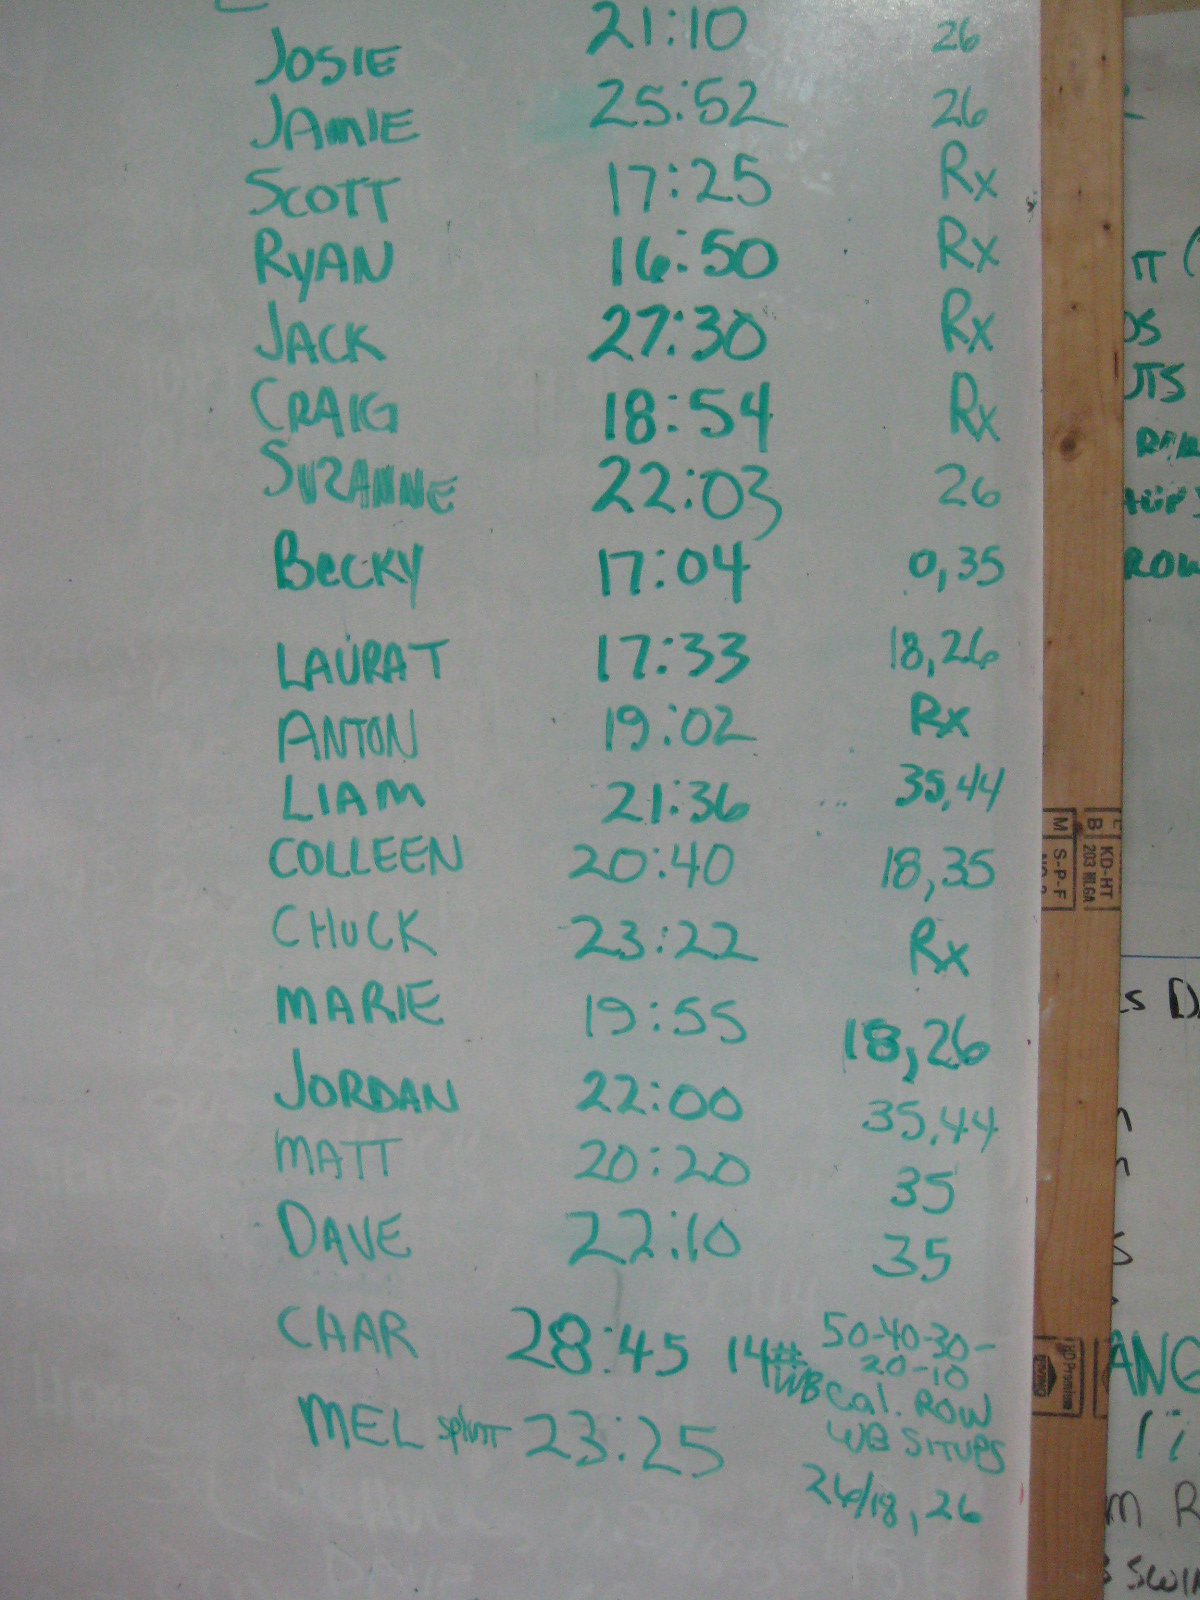 JOSIE 21:10 26
JAMIE 25:52 26
SCOTT 17:25 Rx
RYAN 16:50 Rx
JACK 27:30 Rx
CRAIG 18:54 Rx
SUZANNE 22:03 26
BeCKY 17:04 0,35
LAURA T 17:33 18,26
ANTON 19:02 Rx
LIAM 21:36 35,44
COLLEEN 20:40 18,35
CHUCK 23:22 Rx
MARIE 19:55 18,26
JORDAN 22:00 35,44
MATT 20:20 35
DAVE 22:10 35
CHAR 28:45 14# WB 50-40-30-
20-10
Cal. ROW
WB SITUPS
MEL 23:25 26/18, 26
M S-P-F
B KD-HT
203 NLGA
HD Premium
ROW
ANG